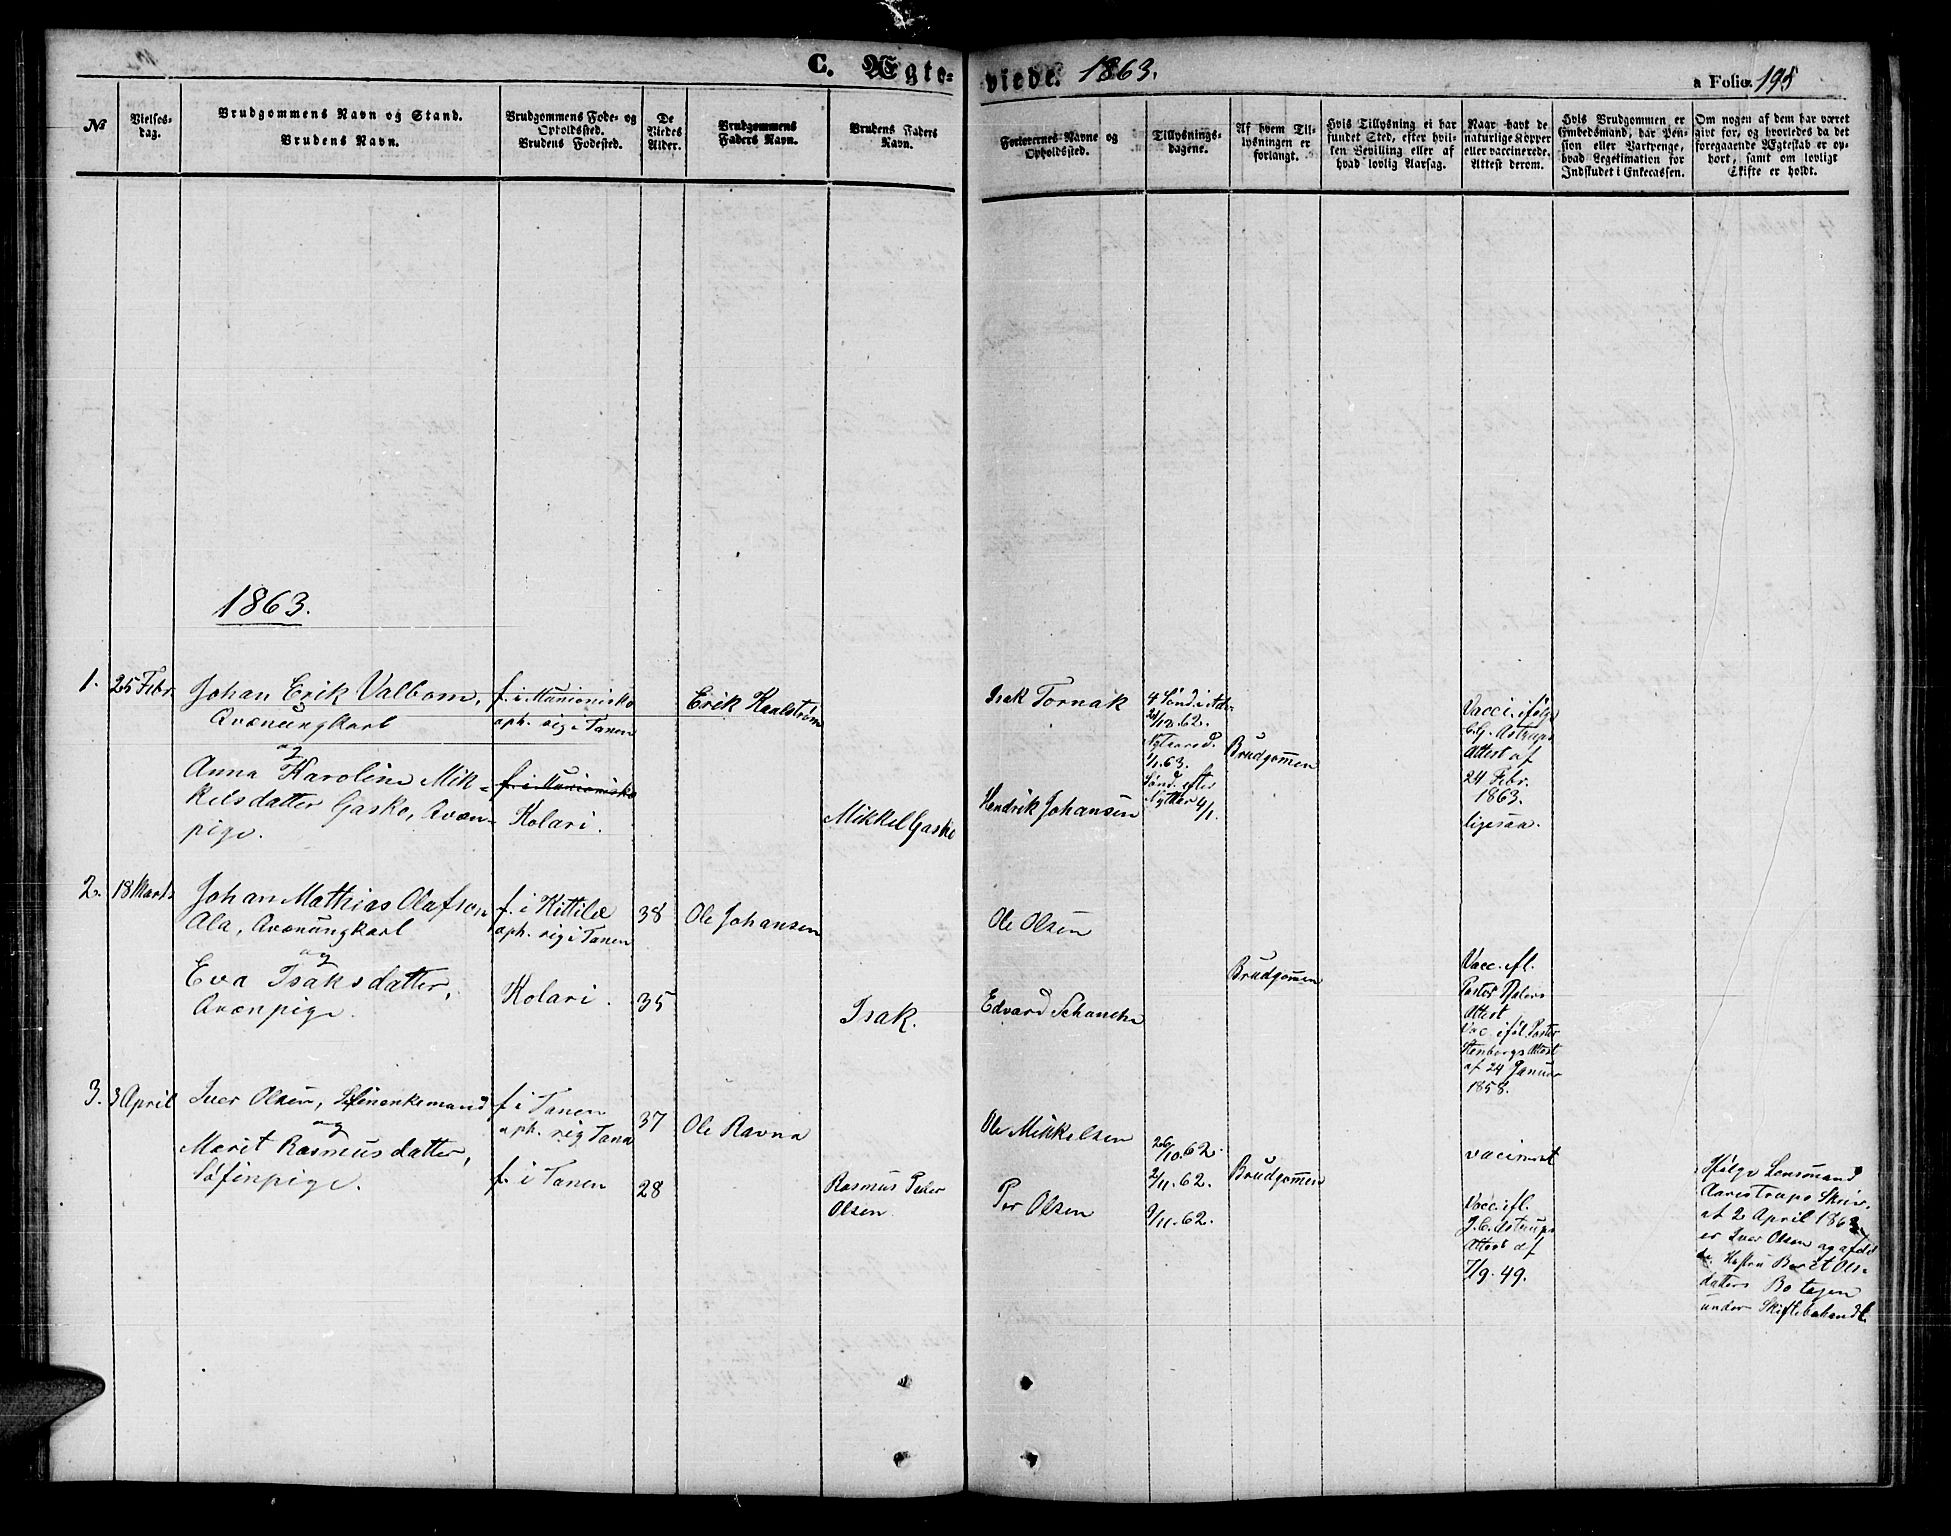 C. Ægte-
viede. 1863.
a Folio. 195
№
Vielses-
dag.
Brudgommens Navn og Stand.
Brudens Navn.
Brudgommens Føde- og
Opholdssted.
Brudens Fødested.
De
Viedes
Alder.
Brudgommens
Faders Navn.
Brudens Faders
Navn.
Forlovernes Navne og
Opholdssted.
Tillysnings-
dagene.
Af hvem Til-
lysningen er
forlangt.
Hvis Tillysning ei har
fundet Sted, efter hvil-
ken Bevilling eller af
hvad lovlig Aarsag.
Naar havt de
naturlige Kopper
eller vaccinerede.
Attest derom.
Hvis Brudgommen er
Embedsmand, har Pen-
sion eller Vartpenge,
hvad Legetimation for
Indskudet i Enkecassen.
Om nogen af dem har været
gift før, og hvorledes da det
foregaaende Ægteskab er op-
hørt, samt om lovligt
Skifte er holdt.
1863.
1. 25 Febr.
Johan Erik Valbom,
Qvænungkarl
og
Anna Karoline Mik-
kelsdatter Gasko, Qvæn-
pige.
f. i Muonionisko
oph. sig i Tanen
f. i Muonionisko
Kolari.
Erik Karlstrøm
Mikkel Gasko
Isak Tornak
Hendrik Johansen
4 Sønd. i Adv.
21/12.62.
Nytaarsd.
1/1.63.
Sønd. efter
Nytaar 4/1.
Brudgommen
Vacci. ifølge
C.G. Astrups
Attest af
24 Febr.
1863.
ligesaa.
2. 18 Marts
Johan Mathias Olafsen
Ala, Qvænungkarl
og
Eva Isaksdatter,
Qvænpige.
f. i Kittile
oph. sig i Tanen
Kolari.
38
35
Ole Johansen
Isak.
Ole Olsen
Edvard Schanche
Brudgommen
Vacc. ifl.
Pastor
Attest
Vac. iføl. Pastor
Stenborgs Attest
af 24 Januar
1858.
3. 3 April
Iver Olsen, Søfinenkemand
og
Marit Rasmusdatter,
Søfinpige.
f. i Tanen
oph. sig Tana
f. i Tanen
37
28
Ole Ravna
Rasmus Peder
Olsen
Ole Mikkelsen
Per Olsen
26/10.62.
2/11.62.
9/11.62.
Brudgommen
vaccineret
Vacc. ifl.
J.C. Astrups
Attest af
7/9.49.
Ifølge Lensmand
Aarestrups Skriv.
af 2 April 1863
er Iver Olsen og afdø
de Hustru Berit Ols-
datters Bo tagen
under Skiftebehandl.